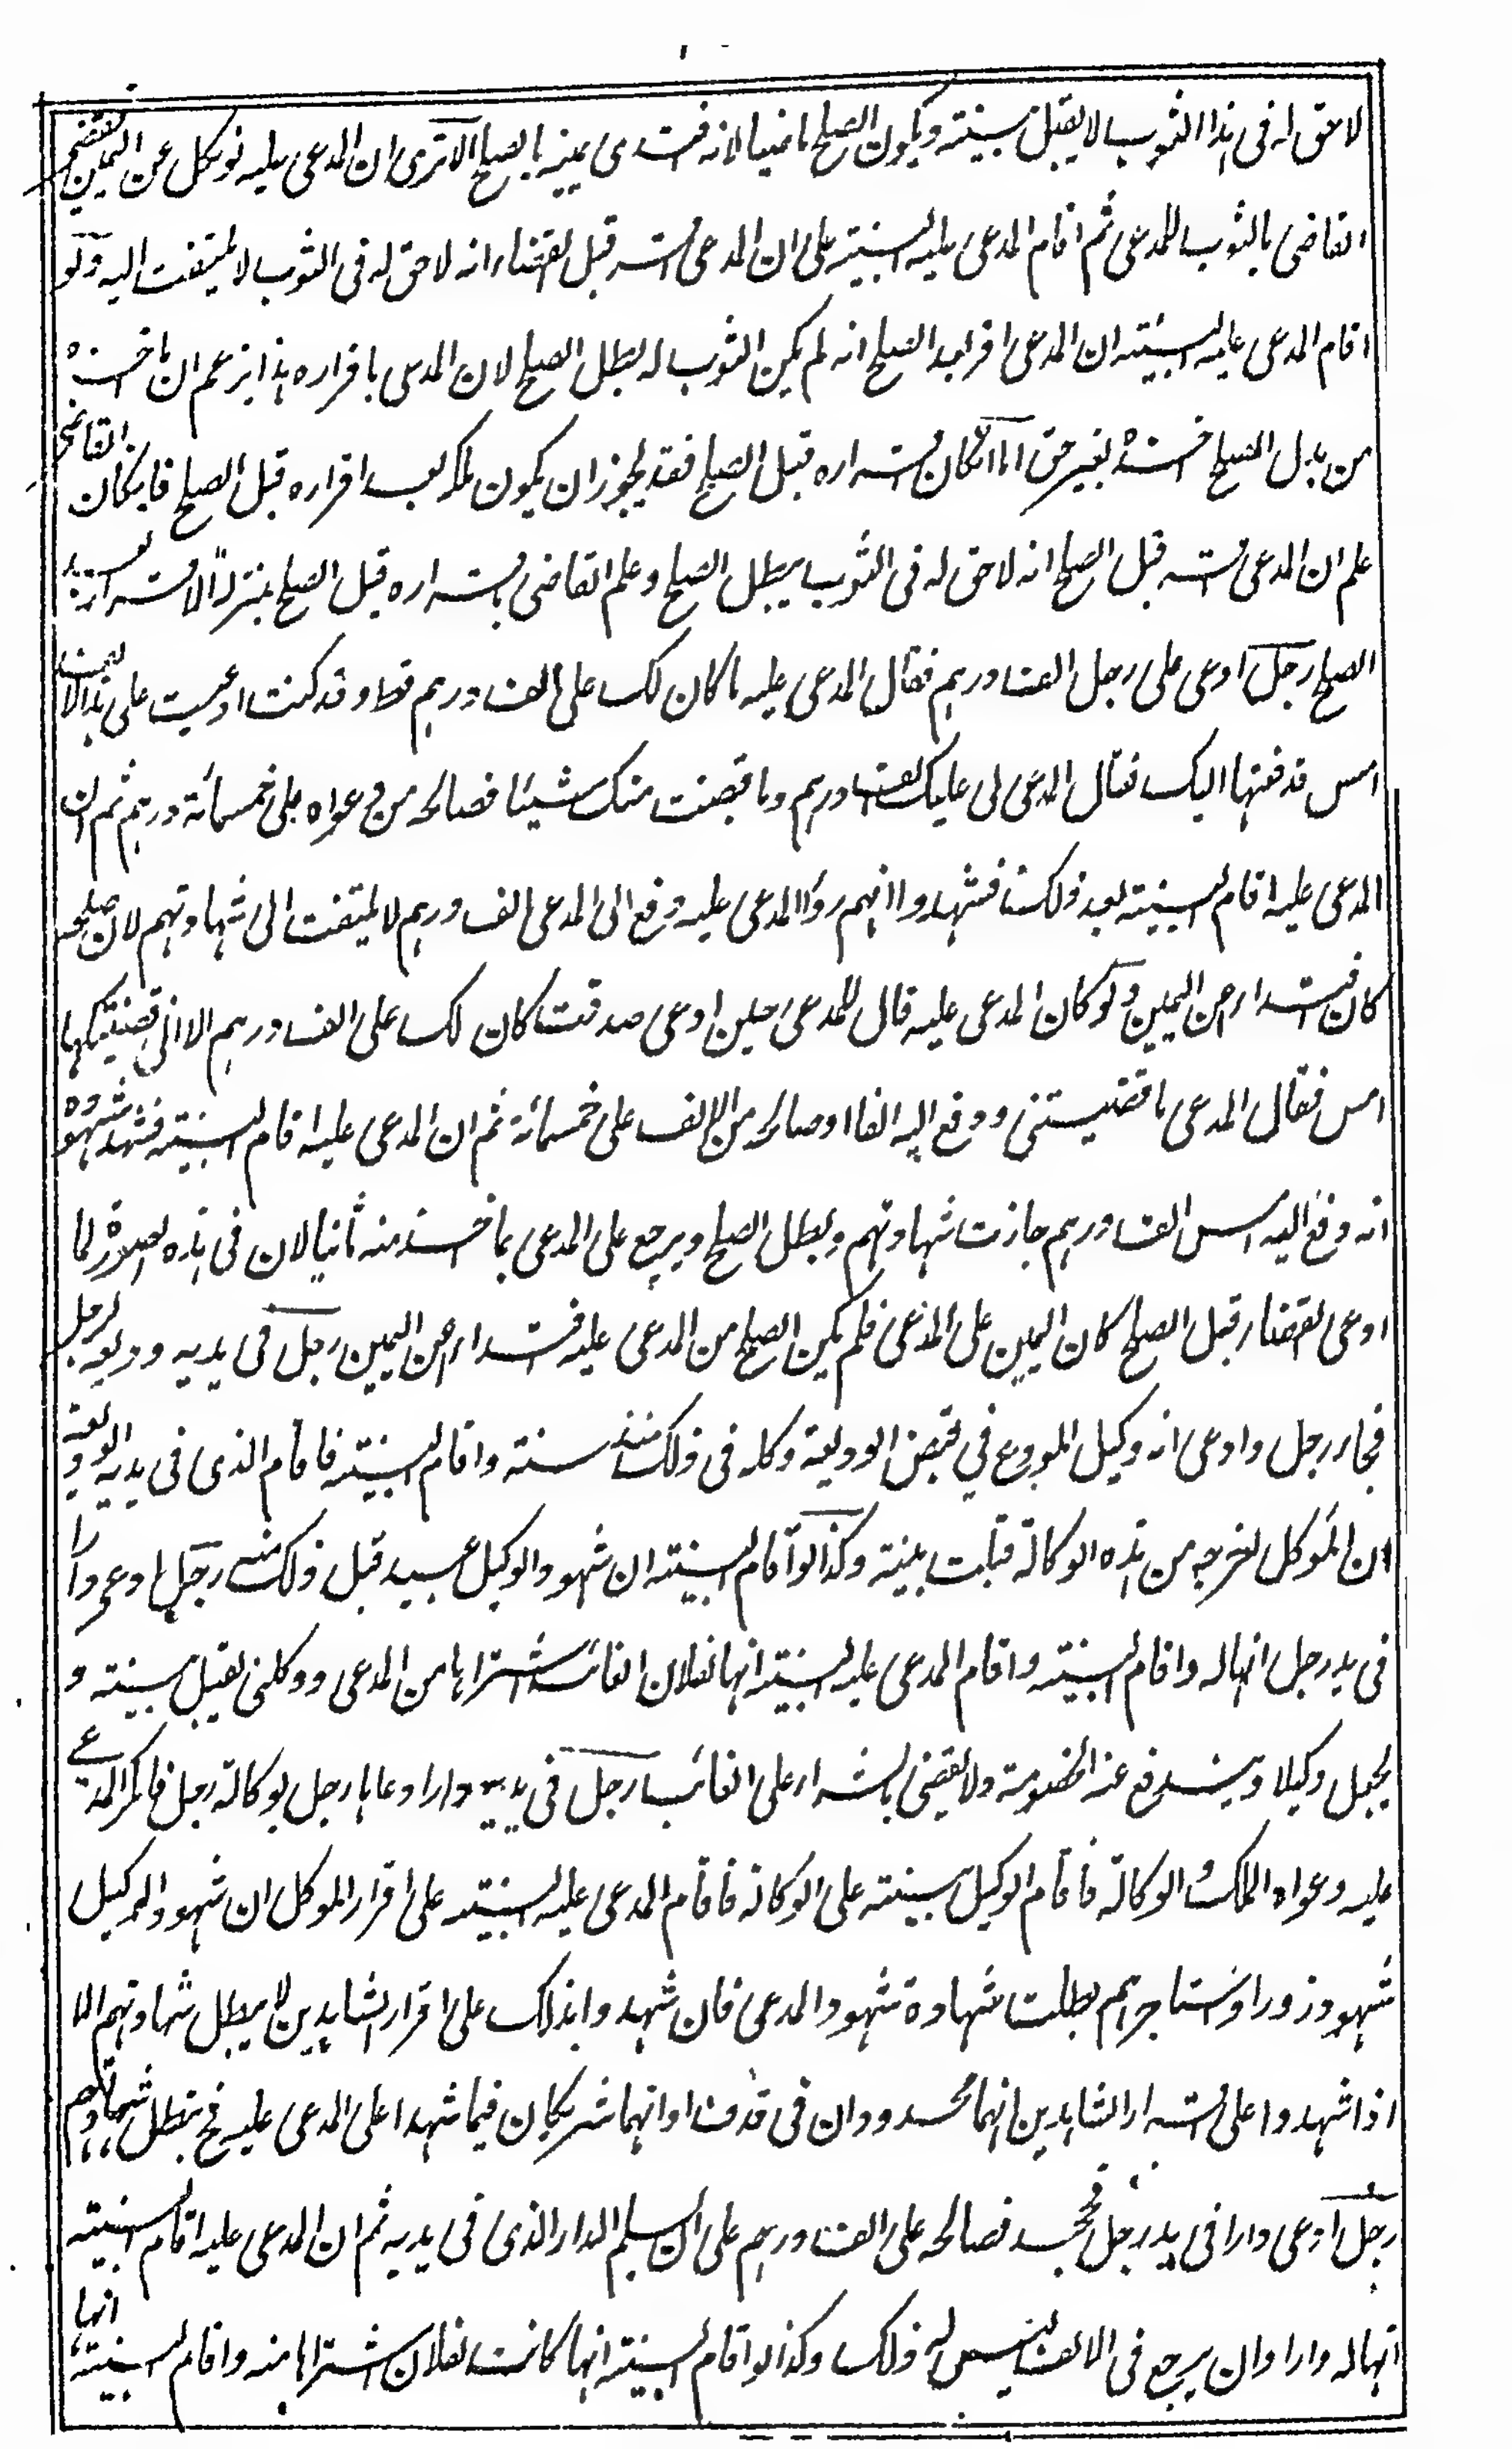 لا حق له فى هذا الثوب لا يقبل بينته و يكون الصلح ماضيا لانه افتدى يمينه بالصلح الا ترى ان المدعى عليه لو نكل عن اليمين فقضى
القاضى بالثوب للمدعى ثم اقام المدعى عليه البينة على ان المدعى اقر قبل القضاء انه لا حق له فى الثوب لا يلتفت اليه ولو
اقام المدعى عليه البينة ان المدعى اقر بعد الصلح انه لم يكن الثوب له بطل الصلح لان المدعى باقراره هذا يزعم ان ما اخذه
من بدل الصلح اخذه بغير حق اما اذا كان اقراره قبل الصلح فقد يجوز ان يكون ملكه بعد اقراره قبل الصلح فان كان القاضى
علم ان المدعى اقر قبل الصلح انه لا حق له فى الثوب يبطل الصلح وعلم القاضى باقراره قبل الصلح بمنزلة الاقرار بعد
الصلح رجل ادعى على رجل الف درهم فقال المدعى عليه ما كان لك على الف درهم قط وقد كنت ادعيت على هذا الالف
امس فدفعتها اليك فقال المدعى لى عليك الف درهم وما قبضت منك شيئا فصالحه من دعواه على خمسمائة درهم ثم ان
المدعى عليه اقام البينة بعد ذلك فشهدوا انهم رؤا المدعى عليه دفع الى المدعى الف درهم لا يلتفت الى شهادتهم لان صلحه
كان افتداء عن اليمين ولو كان المدعى عليه قال للمدعى حين ادعى صدقت كان لك على الف درهم الا انى قضيتكها
امس فقال المدعى ما قضيتنى ودفع اليه الفا او صالحه من الالف على خمسمائة ثم ان المدعى عليه اقام البينة فشهد شهوده
انه دفع اليه امس الف درهم جازت شهادتهم و بطل الصلح ويرجع على المدعى بما اخذ منه ثانيا لان فى هذه الصورة لما
ادعى القضاء قبل الصلح كان اليمين على المدعى فلم يكن الصلح من المدعى عليه افتداء عن اليمين رجل فى يديه وديعة لرجل
فجاء رجل وادعى انه وكيل المودع فى قبض الوديعة وكله فى ذلك منذ سنة واقام البينة فاقام الذى فى يديه الوديعة
ان الموكل اخرجه من هذه الوكالة قبلت بينته وكذا لو اقام البينة ان شهود الوكيل عبيد قبل ذلك منه رجل ادعى دارا
فى يد رجل انها له واقام البينة واقام المدعى عليه البينة انها لفلان الغائب اشتراها من المدعى ووكلنى يقبل بينته و
يجعل وكيلا ويندفع عنه الخصومة ولا يقضى بالشراء على الغائب رجل فى يديه دار ادعاها رجل بوكالة رجل فانكر المدعى
عليه دعواه الملك والوكالة فاقام الوكيل بينته على الوكالة فاقام المدعى عليه البينة على اقرار الموكل ان شهود الوكيل
شهود زور او استاجرهم بطلت شهادة شهود المدعى فان شهدوا بذلك على اقرار الشاهدين لا يبطل شهادتهم الا
اذا شهدوا على اقرار الشاهدين انهما محدودان فى قذف او انهما شريكان فيما شهدا على المدعى عليه فح تبطل شهادتهم
رجل ادعى دارا فى يد رجل فجحد فصالحه على الف درهم على ان يسلم الدار الذى فى يديه ثم ان المدعى عليه اقام البينة
انها له واراد ان يرجع فى الالف ليس له ذلك وكذا لو اقام البينة انها كانت لفلان اشتراها منه واقام البينة انها